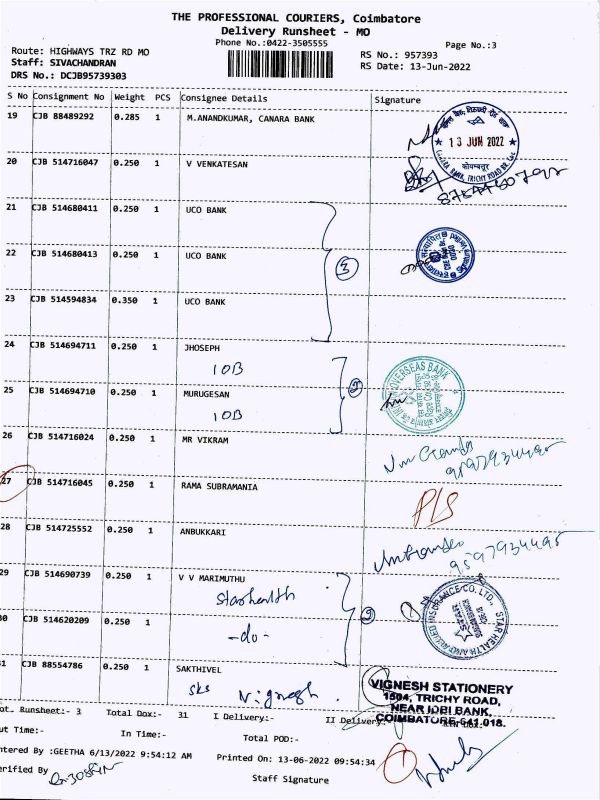 THE PROFESSIONAL COURIERS, Coimbatore
Delivery Runsheet - MO
Phone No.:0422-3505555
Page No.:3
Route: HIGHWAYS TRZ RD MO
RS No.: 957393
Staff: SIVACHANDRAN
RS Date: 13-Jun-2022
DRS No.: DCJB95739303
S No Consignment No Weight PCS Consignee Details Signature
19 CJB 88489292 0.285 1 M.ANANDKUMAR, CANARA BANK
★ 13 JUN 2022 ★
कोयम्बत्तूर
20 CJB 514716047 0.250 1 V VENKATESAN
21 CJB 514680411 0.250 1 UCO BANK
22 CJB 514680413 0.250 1 UCO BANK
3
23 CJB 514594834 0.350 1 UCO BANK
24 CJB 514694711 0.250 1 JHOSEPH
IOB
OVERSEAS BANK
25 CJB 514694710 0.250 1 MURUGESAN
IOB
26 CJB 514716024 0.250 1 MR VIKRAM
27 CJB 514716045 0.250 1 RAMA SUBRAMANIA
28 CJB 514725552 0.250 1 ANBUKKARI
9597934495
29 CJB 514690739 0.250 1 V V MARIMUTHU
Starhealth
STAR HEALTH AND ALLIED INSURANCE CO. LTD.,
30 CJB 514620209 0.250 1
-do-
31 CJB 88554786 0.250 1 SAKTHIVEL
sks Vignesh.
VIGNESH STATIONERY
1504, TRICHY ROAD,
NEAR IDBI BANK,
COIMBATORE-641 018.
ot. Runsheet:- 3 Total Dox:- 31 I Delivery:- II Delivery:-
ut Time:- In Time:- Total POD:-
ntered By :GEETHA 6/13/2022 9:54:12 AM Printed On: 13-06-2022 09:54:34
erified By
Staff Signature